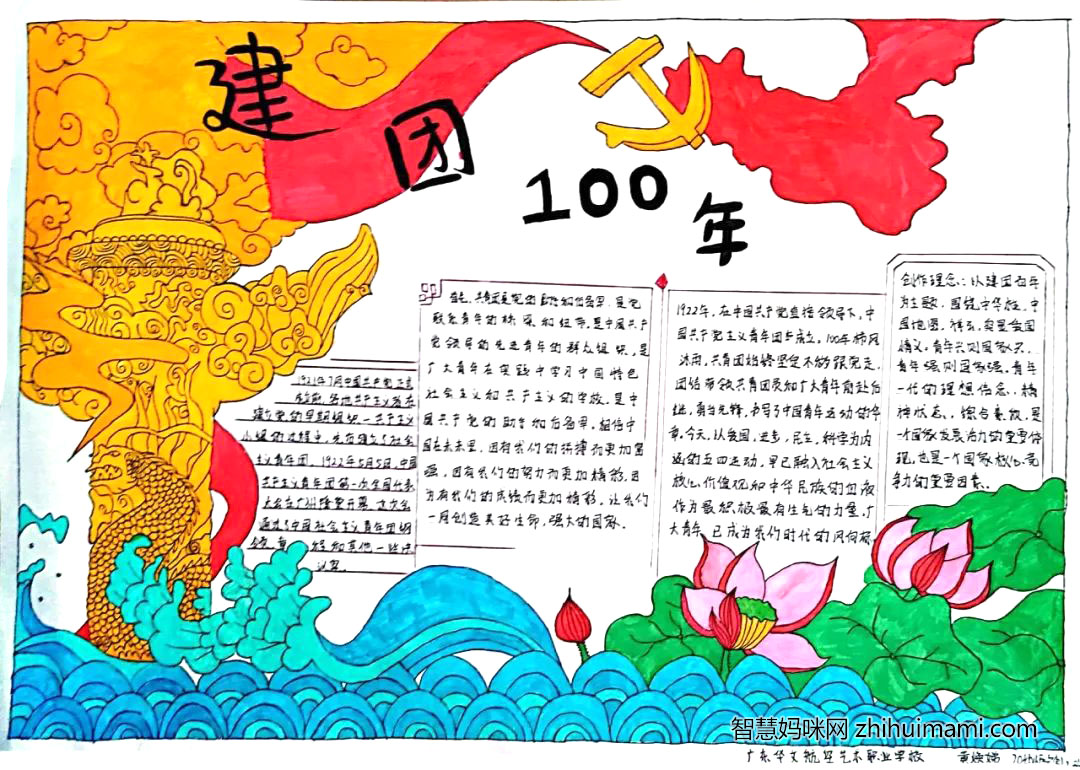 建团100年
1921年7月中国共产党正式
主义青年团。1922年5月5日,中国
共产主义青年团第一次全国代表
大会在广州隆重开幕。这次会
通过了中国社会主义青年团纲
认可。
联系青年的桥梁和纽带,是中国共产
党领导的先进青年的群众组织,是
广大青年在实践中学习中国特色
社会主义和共产主义的学校,是中
国共产党的助手和后备军。相信中
国在未来里,因有我们的拼搏而更加富
强,因有我们的努力而更加精彩,因
为有我们的成绩而更加精彩,让我们
一同创造美好生命,强大的国家。
1922年,在中国共产党直接领导下,中
国共产主义青年团宣告成立。100年栉风
沐雨,共青团始终坚定不移跟党走,
团结带领共青团员和广大青年前赴后
继,勇当先锋,书写了中国青年运动的华
章。今天,以爱国,进步,民主,科学为内
涵的五四运动,早已融入社会主义
核心价值观和中华民族的血液
作为最积极最有生气的力量,广
大青年,已成为我们时代的风向标。
创作理念:以建团百年
为主题,围绕中华柱,中
国地图,祥云,突显爱国
情义,青年兴则国家兴,
青年强则国家强。青年
一代的理想信念,精
神状态,综合素质,是
一个国家发展活力的重要体
现,也是一个国家核心竞
争力的重要因素。
智慧妈咪网 zhihuimami.com
广东华文航空艺术职业学校